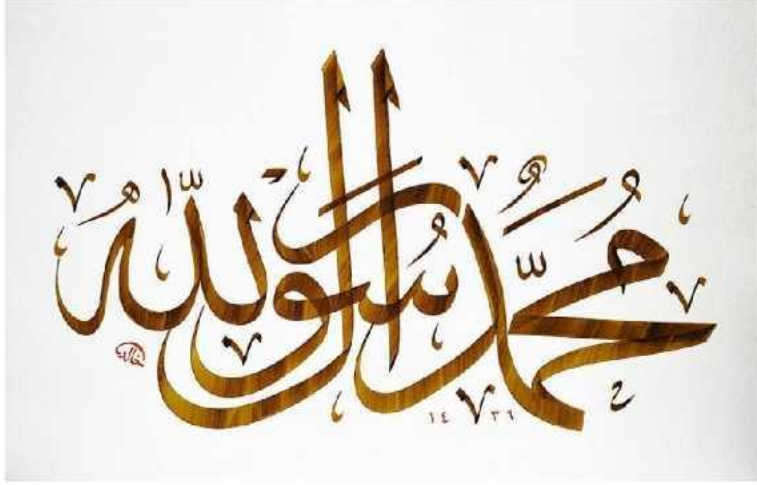 مُحَمَّدٌ رَسُولُ اللّٰهِ
١٤٣٦